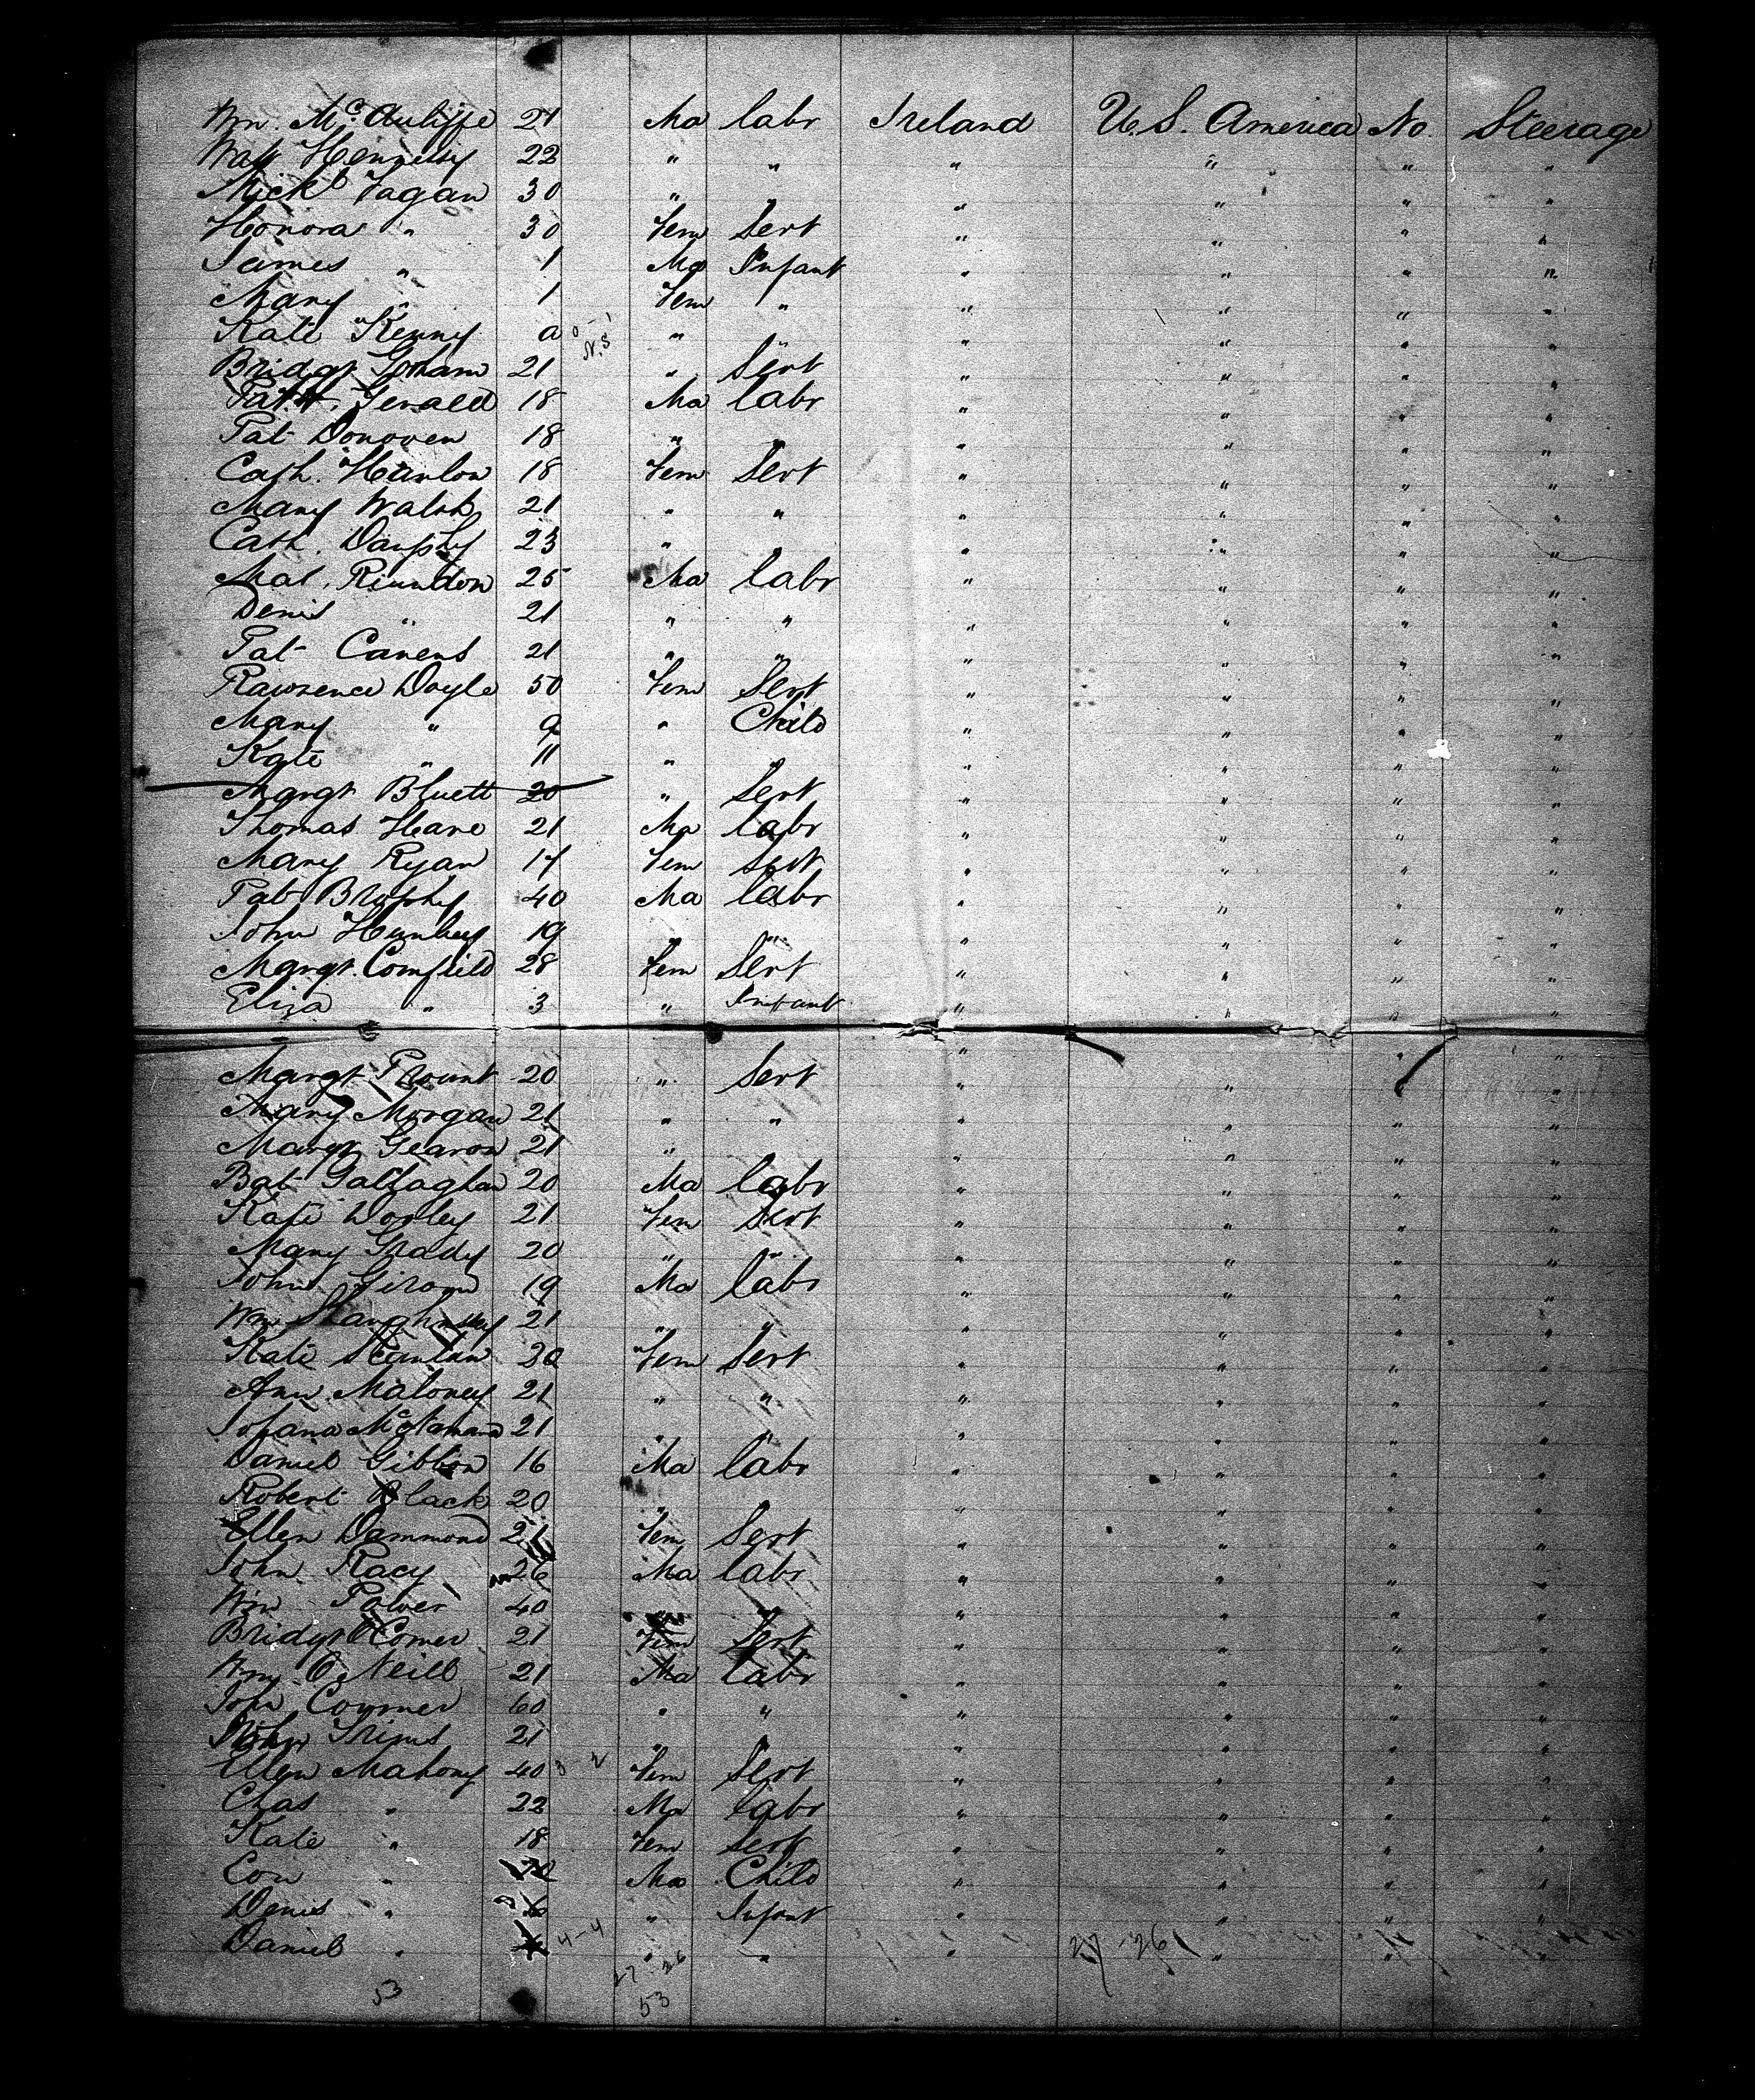 Wm. McAuliffe 21 Ma labr Ireland U.S. America No. Steerage
Walt Hennessy 22 " " " " " "
Michl Fagan 30 " " " " " "
Honora " 30 Fem Sert " " " "
James " 1 Ma Infant " " " "
Mary " 1 Fem " " " " "
Kate Kenny " " " " "
Bridgt 21 " Sert " " " "
Gerald 18 Ma labr " " " "
Pat Donoven 18 " " " " " "
Cath. Hanlon 18 Fem Sert " " " "
Mary Walsh 21 " " " " " "
Cath. 23 " " " " " "
Mal. Riundon 25 Ma labr " " " "
Denis " 21 " " " " " "
Pat Canens 21 " " " " " "
Doyle 50 Fem Sert " " " "
Mary " 9 " Child " " " "
Kate " 11 " " " " " "
Margt Bluett 20 " Sert " " " "
Thomas Hare 21 Ma labr " " " "
Mary Ryan 17 Fem Sert " " " "
Pat Brophy 40 Ma labr " " " "
John 19 " " " " " "
Margt. Comfield 28 Fem Sert " " " "
Eliza " 3 " Infant " " " "
" " "
Margt 20 " Sert " " " "
Mary Morgan 21 " " " " " "
Margt Gearon 21 " " " " "
Bat Gallaghan 20 Ma labr " " " "
Kate Dooley 21 Fem Sert " " " "
Mary Grady 20 " " " " " "
John 19 Ma labr " " " "
Wm Shaughnssy 21 " " " " " "
Kate Scanlan 20 Fem Sert " " " "
Ann Maloney 21 " " " " " "
Johana McNamara 21 " " " " " "
Daniel Gibbon 16 Ma labr " " " "
Robert Black 20 " " " " "
Ellen Dammond 21 Fem Sert " " " "
John Racy 26 Ma labr " " " "
Wm Power 40 " " " " "
Bridgt Comer 21 Fem Sert " " " "
Wm O Neill 21 Ma labr " " " "
John Conmer 60 " " " " " "
John 21 " " " " " "
Ellen Mahony 40 3 2 Fem Sert " " " "
Chas " 22 Ma labr " " " "
Kate " 18 Fem Sert " " " "
Con " Ma Child " " " "
Denis " 6 " Infant " " " "
Daniel " 4-4 " " " 27-26 " " "
27-26
53 53